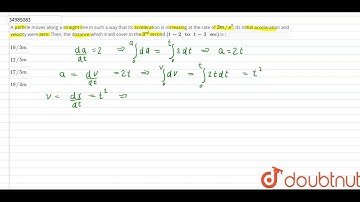 34985083
A particle moves along a straight line in such a way that its acceleration is increasing at the rate of 2m/s³. Its initial acceleration and
velocity were zero. Then, the distance which it will cover in the 3rd second (t = 2 to t = 3 sec) is:
19/3m
12/5m
17/5m
19/2m
da/dt = 2 ⇒ ∫₀ᵃ da = ∫₀ᵗ 2dt ⇒ a = 2t
a = dv/dt = 2t ⇒ ∫₀ᵛ dv = ∫₀ᵗ 2t dt = t²
v = dx/dt = t² ⇒
doubtnut